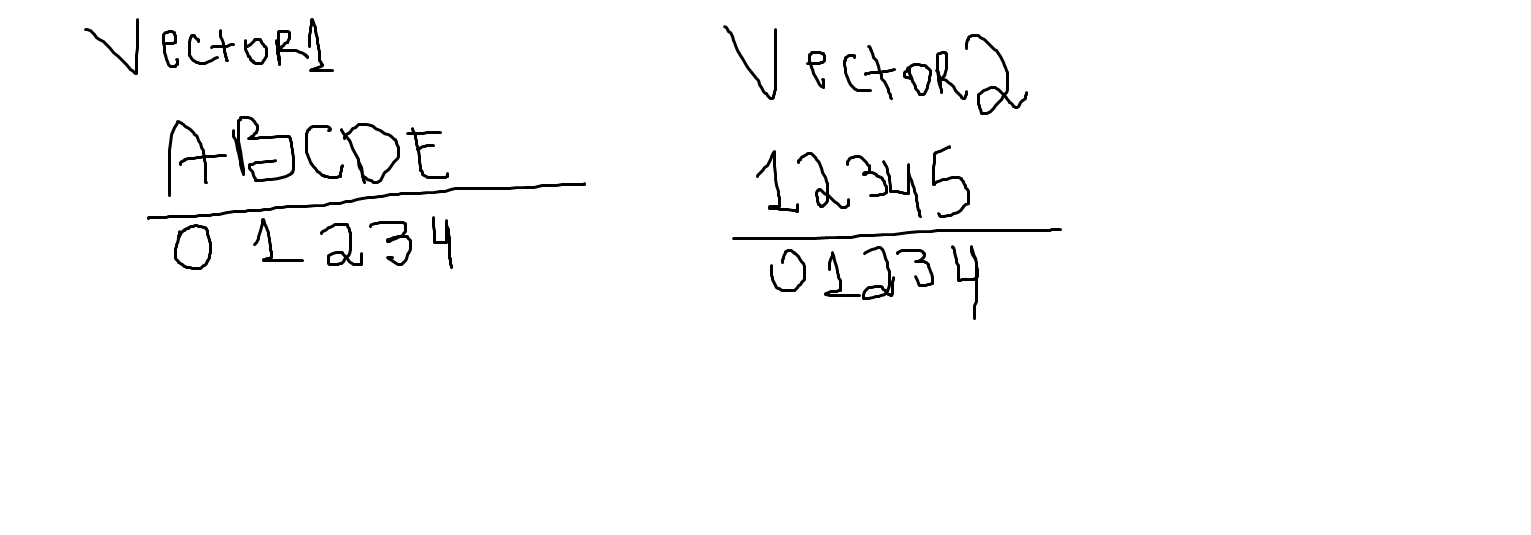 Vector1
ABCDE
0 1 2 3 4
Vector2
12345
01234